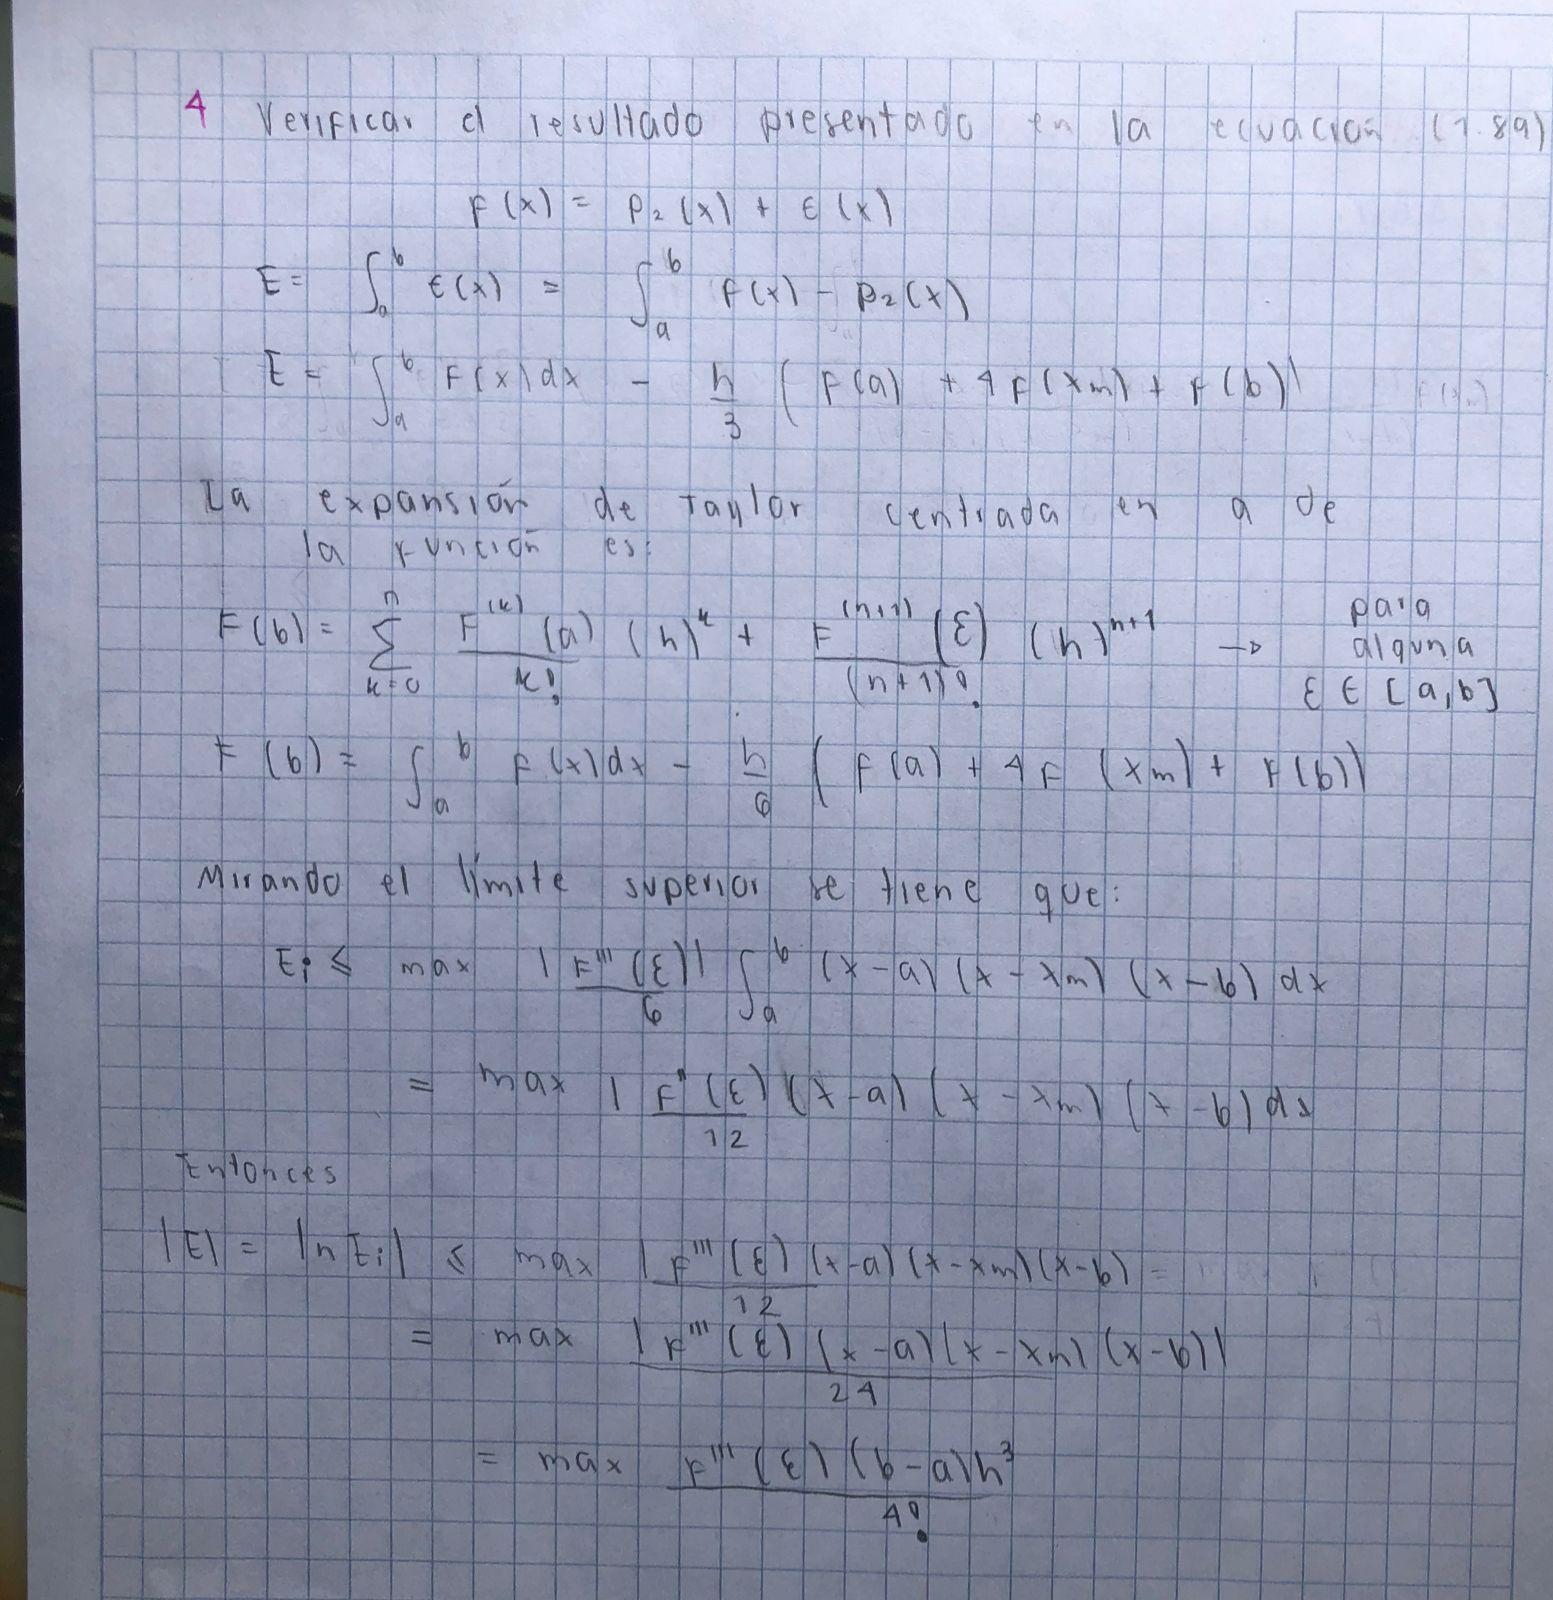 4 Verificar el resultado presentado en la ecuación (1.89)
F(x) = P₂(x) + ε(x)
E = ∫ₐᵇ ε(x) = ∫ₐᵇ f(x) - P₂(x)
E = ∫ₐᵇ F(x)dx - h/3 (F(a) + 4F(xm) + F(b))
La expansión de Taylor centrada en a de
la función es:
F(b) = Σₖ₌₀ⁿ F⁽ᵏ⁾(a)/k! (h)ᵏ + F⁽ⁿ⁺¹⁾(ξ)/(n+1)! (h)ⁿ⁺¹ → para alguna ξ ∈ [a,b]
F(b) = ∫ₐᵇ F(x)dx - h/6 (F(a) + 4F(xm) + F(b))
Mirando el límite superior se tiene que:
Ei ≤ max |F'''(ξ)|/6 ∫ₐᵇ (x-a)(x-xm)(x-b) dx
= max | F''(ξ)/12 (x-a)(x-xm)(x-b) dx
Entonces
|E| = |nEi| ≤ max | F'''(ξ)/12 (x-a)(x-xm)(x-b) =
= max |F'''(ξ)(x-a)(x-xm)(x-b)|/24
= max F'''(ξ)(b-a)h³/4!